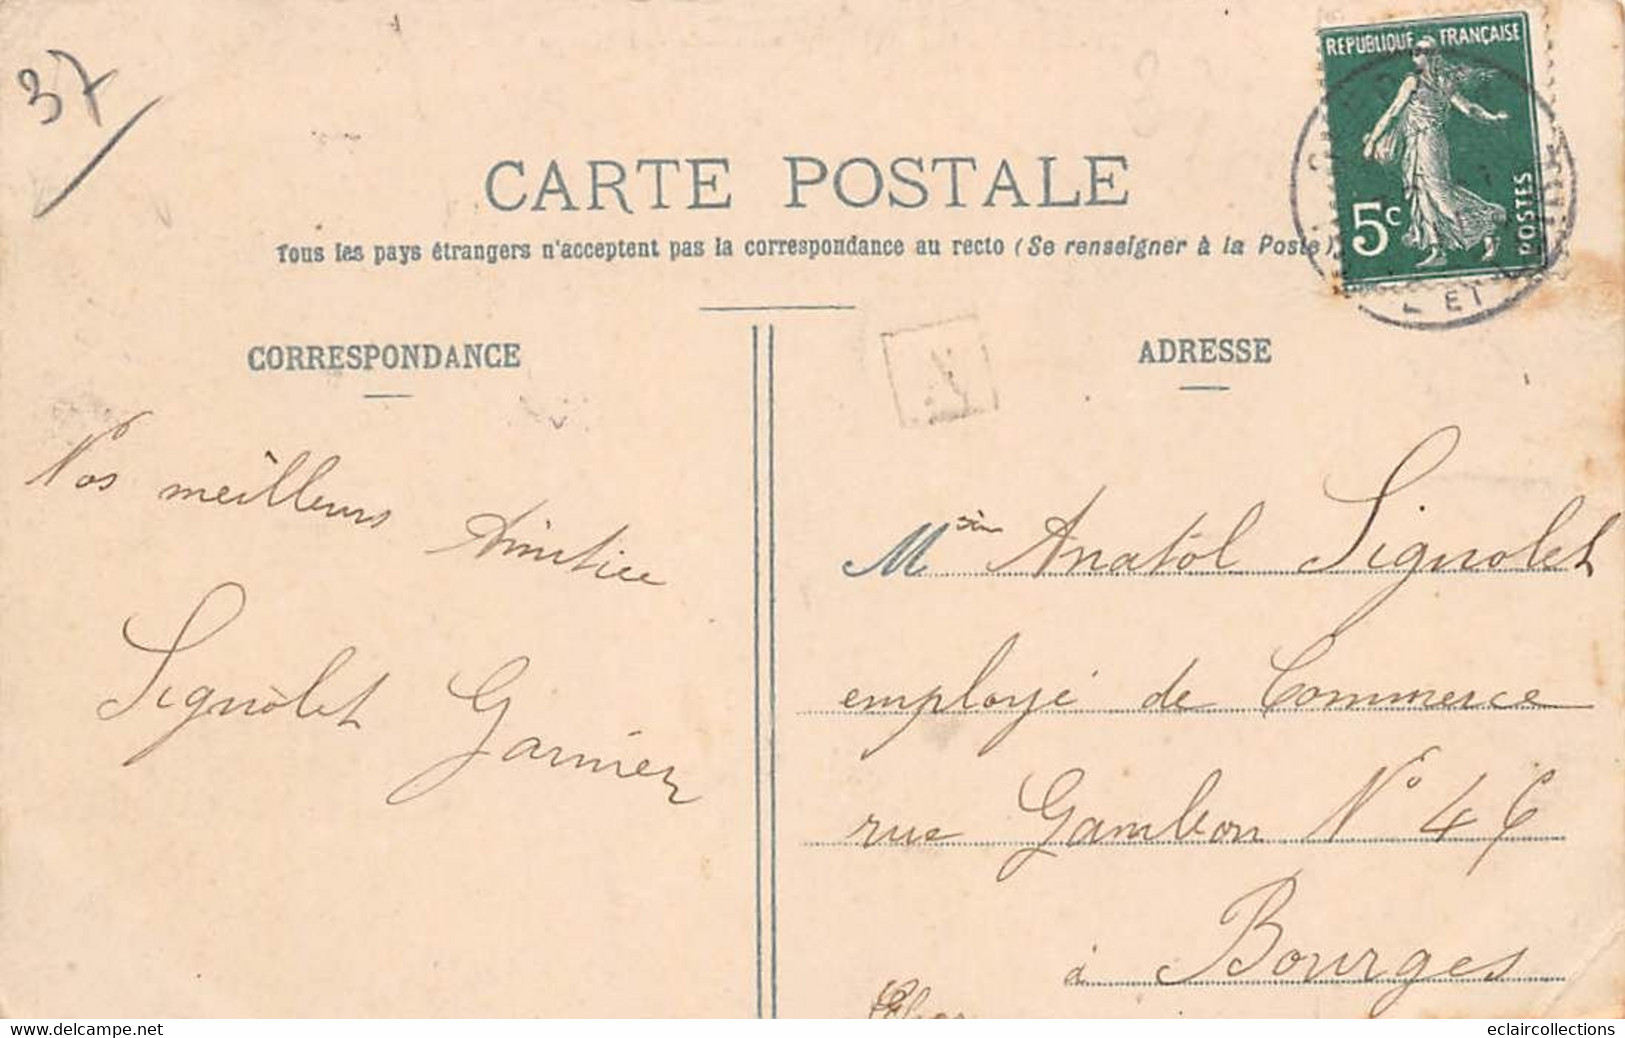 37
REPUBLIQUE FRANÇAISE
5c
POSTES
CARTE POSTALE
Tous les pays étrangers n'acceptent pas la correspondance au recto (Se renseigner à la Poste)
CORRESPONDANCE
ADRESSE
Nos meilleurs Amitiee
Signolet Garnier
M Anatol Signolet
employé de Commerce
rue Gambon N° 46
à Bourges
Cher
www.delcampe.net
eclaircollections